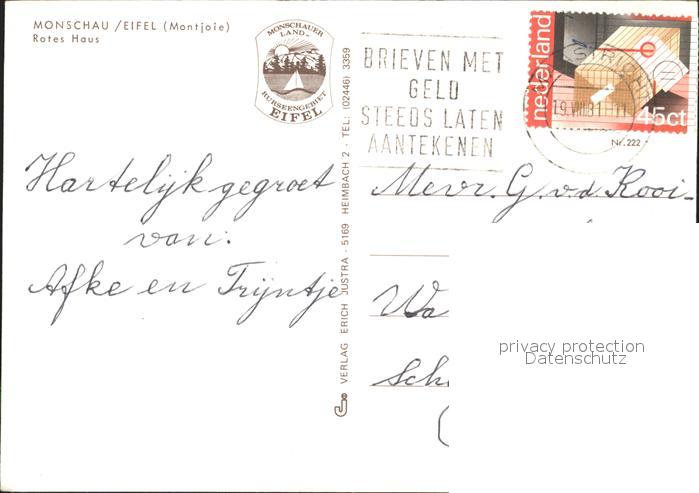 MONSCHAU /EIFEL (Montjoie)
Rotes Haus
MONSCHAUER
LAND-
RURSEENGEBIET
EIFEL
BRIEVEN MET
GELD
STEEDS LATEN
AANTEKENEN
nederland
45ct
Nr. 222
Hartelijk gegroet
van:
Afke en Trijntje
VERLAG ERICH JUSTRA · 5169 HEIMBACH 2 · TEL.: (02446) 3359
Mevr. G. v.d. Kooi-
Wa
Sch
(
privacy protection
Datenschutz